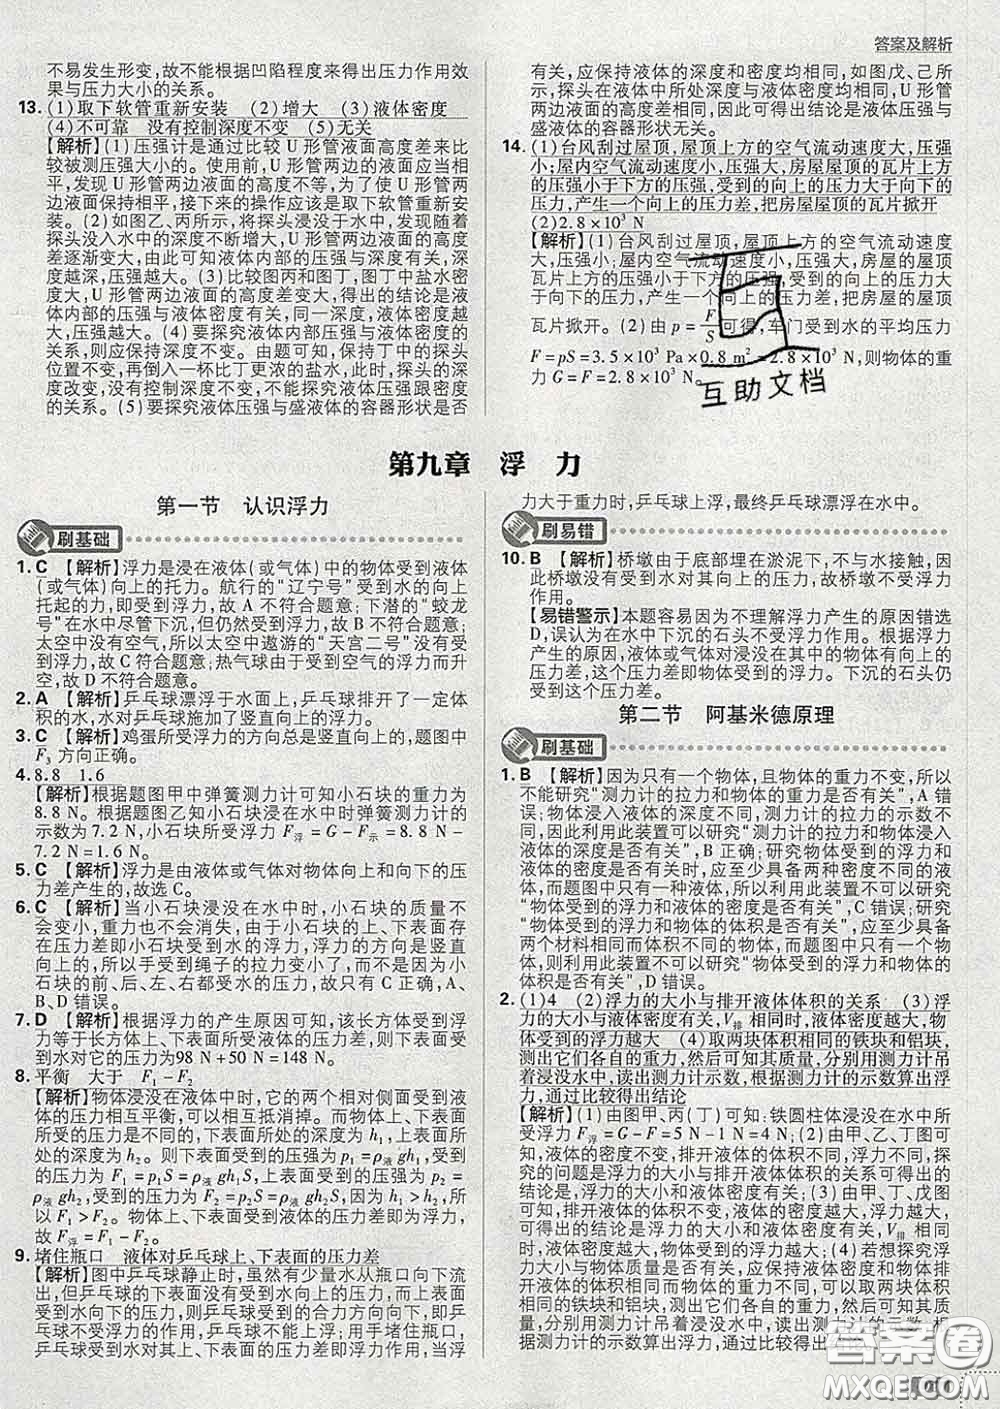 答案及解析
不易发生形变,故不能根据凹陷程度来得出压力作用效
果与压力大小的关系。
13. (1)取下软管重新安装 (2)增大 (3)液体密度
(4)不可靠 没有控制深度不变 (5)无关
【解析】(1)压强计是通过比较 U 形管液面高度差来比
较被测压强大小的。使用前,U 形管两边的液面应当相
平,发现 U 形管两边液面的高度不等,为了使 U 形管两
边液面保持相平,接下来的操作应该是取下软管重新安
装。(2)如图乙、丙所示,将探头浸没于水中,发现随着
探头没入水中的深度不断增大,U 形管两边液面的高度
差逐渐变大,由此可知液体内部的压强与深度有关,深
度越深,压强越大。(3)比较图丙和图丁,图丁中盐水密
度较大,U 形管两边液面的高度差变大,得出的结论是液
体内部的压强与液体密度有关,同一深度,液体密度越
大,压强越大。(4)要探究液体内部压强与液体密度的
关系,则应保持深度不变。由题可知,保持丁中的探头
位置不变,再倒入一杯比丁更浓的盐水,此时,探头的深
度改变,没有控制深度不变,不能探究液体压强跟密度的
关系。(5)要探究液体压强与盛液体的容器形状是否
有关,应保持液体的深度和密度均相同,如图戊、己所
示,探头在液体中所处深度与液体密度均相同,U 形管
两边液面的高度差相同,因此可得出结论是液体压强与
盛液体的容器形状无关。
14. (1)台风刮过屋顶,屋顶上方的空气流动速度大,压强
小;屋内空气流动速度小,压强大,房屋屋顶的瓦片上方
的压强小于下方的压强,受到的向上的压力大于向下的
压力,产生一个向上的压力差,把房屋屋顶的瓦片掀开
(2)2.8×10³ N
【解析】(1)台风刮过屋顶,屋顶上方的空气流动速度
大,压强小;屋内空气流动速度小,压强大,房屋的屋顶
瓦片上方的压强小于下方的压强,受到的向上的压力大
于向下的压力,产生一个向上的压力差,把房屋的屋顶
瓦片掀开。(2)由 p=F/S可得,车门受到水的平均压力
F=pS=3.5×10³ Pa×0.8 m²=2.8×10³ N,则物体的重
力 G=F=2.8×10³ N。
互助文档
第九章 浮 力
第一节 认识浮力
刷基础
1. C 【解析】浮力是浸在液体(或气体)中的物体受到液体
(或气体)向上的托力。航行的“辽宁号”受到水的向上
托起的力,即受到浮力,故 A 不符合题意;下潜的“蛟龙
号”在水中尽管下沉,但仍然受到浮力,故 B 不符合题意;
太空中没有空气,所以太空中遨游的“天宫二号”没有受
到浮力,故 C 符合题意;热气球由于受到空气的浮力而升
空,故 D 不符合题意。
2. A 【解析】乒乓球漂浮于水面上,乒乓球排开了一定体
积的水,水对乒乓球施加了竖直向上的浮力。
3. C 【解析】鸡蛋所受浮力的方向总是竖直向上的,题图中
F₃ 方向正确。
4. 8.8 1.6
【解析】根据题图甲中弹簧测力计可知小石块的重力为
8.8 N。根据图乙知小石块浸在水中时弹簧测力计的
示数为 7.2 N,小石块所受浮力 F浮=G-F示=8.8 N-
7.2 N=1.6 N。
5. C 【解析】浮力是由液体或气体对物体向上和向下的压
力差产生的,故选 C。
6. C 【解析】当小石块浸没在水中时,小石块的质量不
会变小,重力也不会消失,由于小石块的上、下表面存
在压力差即小石块受到水的浮力,浮力的方向是竖直
向上的,所以手受到绳子的拉力变小了,而不是消失,小
石块的前、后、左、右都受水的压力,因此只有 C 正确,
A、B、D 错误。
7. D 【解析】根据浮力的产生原因可知,该长方体受到浮
力等于长方体上、下表面受到液体的压力差,则下表面
受到水对它的压力为98 N+50 N=148 N。
8. 平衡 大于 F₁-F₂
【解析】物体浸没在液体中时,它的两个相对侧面受到的
液体的压力相互平衡,可以相互抵消掉。而物体上、下表面受到
的压力是不同的,上表面所处的深度为 h₁,下表面所处的
深度为 h₂。则下表面受到的压强为 p₁=ρ液gh₁,受
到的压力为 F₁=p₁S=ρ液gh₁S,上表面受到的压强为 p₂=
ρ液gh₂,受到的压力为 F₂=p₂S=ρ液gh₂S,因为 h₁>h₂,所
以 F₁>F₂。物体上、下表面受到液体的压力差即为浮力,
故 F浮=F₁-F₂。
9. 堵住瓶口 液体对乒乓球上、下表面的压力差
【解析】图中乒乓球静止时,虽然有少量水从瓶口向下流
出,但乒乓球的下表面没有受到水向上的压力,而上表面
受到水向下的压力,则乒乓球受到的合力方向向下,即乒
乓球不受浮力的作用,乒乓球不能上浮;用手堵住瓶口,
乒乓球受到水对其上、下表面的压力差,即浮力,当浮
力大于重力时,乒乓球上浮,最终乒乓球漂浮在水中。
刷易错
10. B 【解析】桥墩由于底部埋在淤泥下,不与水接触,因
此桥墩没有受到水对其向上的压力,故桥墩不受浮力
作用。
【易错警示】本题容易因为不理解浮力产生的原因错选
D,误认为在水中下沉的石头不受浮力作用。根据浮力
产生的原因,液体或气体对浸没在其中的物体有向上的
压力差,这个压力差即物体受到的浮力。下沉的石头仍
受到这个压力差。
第二节 阿基米德原理
刷基础
1. B 【解析】因为只有一个物体,且物体的重力不变,所以
不能研究“测力计的拉力和物体的重力是否有关”,A 错
误;物体浸入液体的深度不同,测力计的拉力的示数不
同,因此利用此装置可以研究“测力计的拉力和物体浸入
液体的深度是否有关”,B 正确;研究物体受到的浮力和
液体的密度是否有关时,应至少具备两种密度不同的液
体,而题图中只有一种液体,所以不能利用此装置研究
“物体受到的浮力和液体的密度是否有关”,C 错误;研究
“物体受到的浮力和物体的体积是否有关”,应至少具备
两个材料相同而体积不同的物体,而题图中只有一个物
体,所以不能利用此装置研究“物体受到的浮力和物体的
体积是否有关”,D 错误。
2. (1)4 (2)浮力的大小与排开液体体积的关系 (3)浮
力的大小与液体密度有关,V排 相同时,液体密度越大,物
体受到浮力越大 (4)取两块体积相同的铁块和铝块,
测出它们各自的重力,然后可知其质量,分别用测力计吊
着浸没水中,读出测力计示数,根据测力计的示数算出浮
力,通过比较得出结论
【解析】(1)由图甲、丙(丁)可知:铁圆柱体浸没在水中所
受浮力 F浮=G-F=5 N-1 N=4 N;(2)由甲、乙、丁图可
知,液体的密度不变,排开液体的体积不同,浮力不同,探
究的问题是浮力的大小与排开液体体积的关系可得出的
结论是,浮力的大小和液体密度有关;(3)由甲、丁、戊图
可知,排开液体的体积不变,液体密度越大,浮力越大,
可得出的结论为浮力的大小与液体密度有关,V排 相同
时,液体密度越大,物体受到的浮力越大;(4)若想探究浮
力大小与物体质量是否有关,应保持液体密度和物体排
开液体的体积相同而物体的重力不同,可以取两块体积
相同的铁块和铝块,测出它们各自的重力,然后可知其质
量,分别用测力计吊着浸没水中,读出测力计示数,根
据测力计的示数算出浮力,通过比较得出结论。
答案圈
MXQE.COM